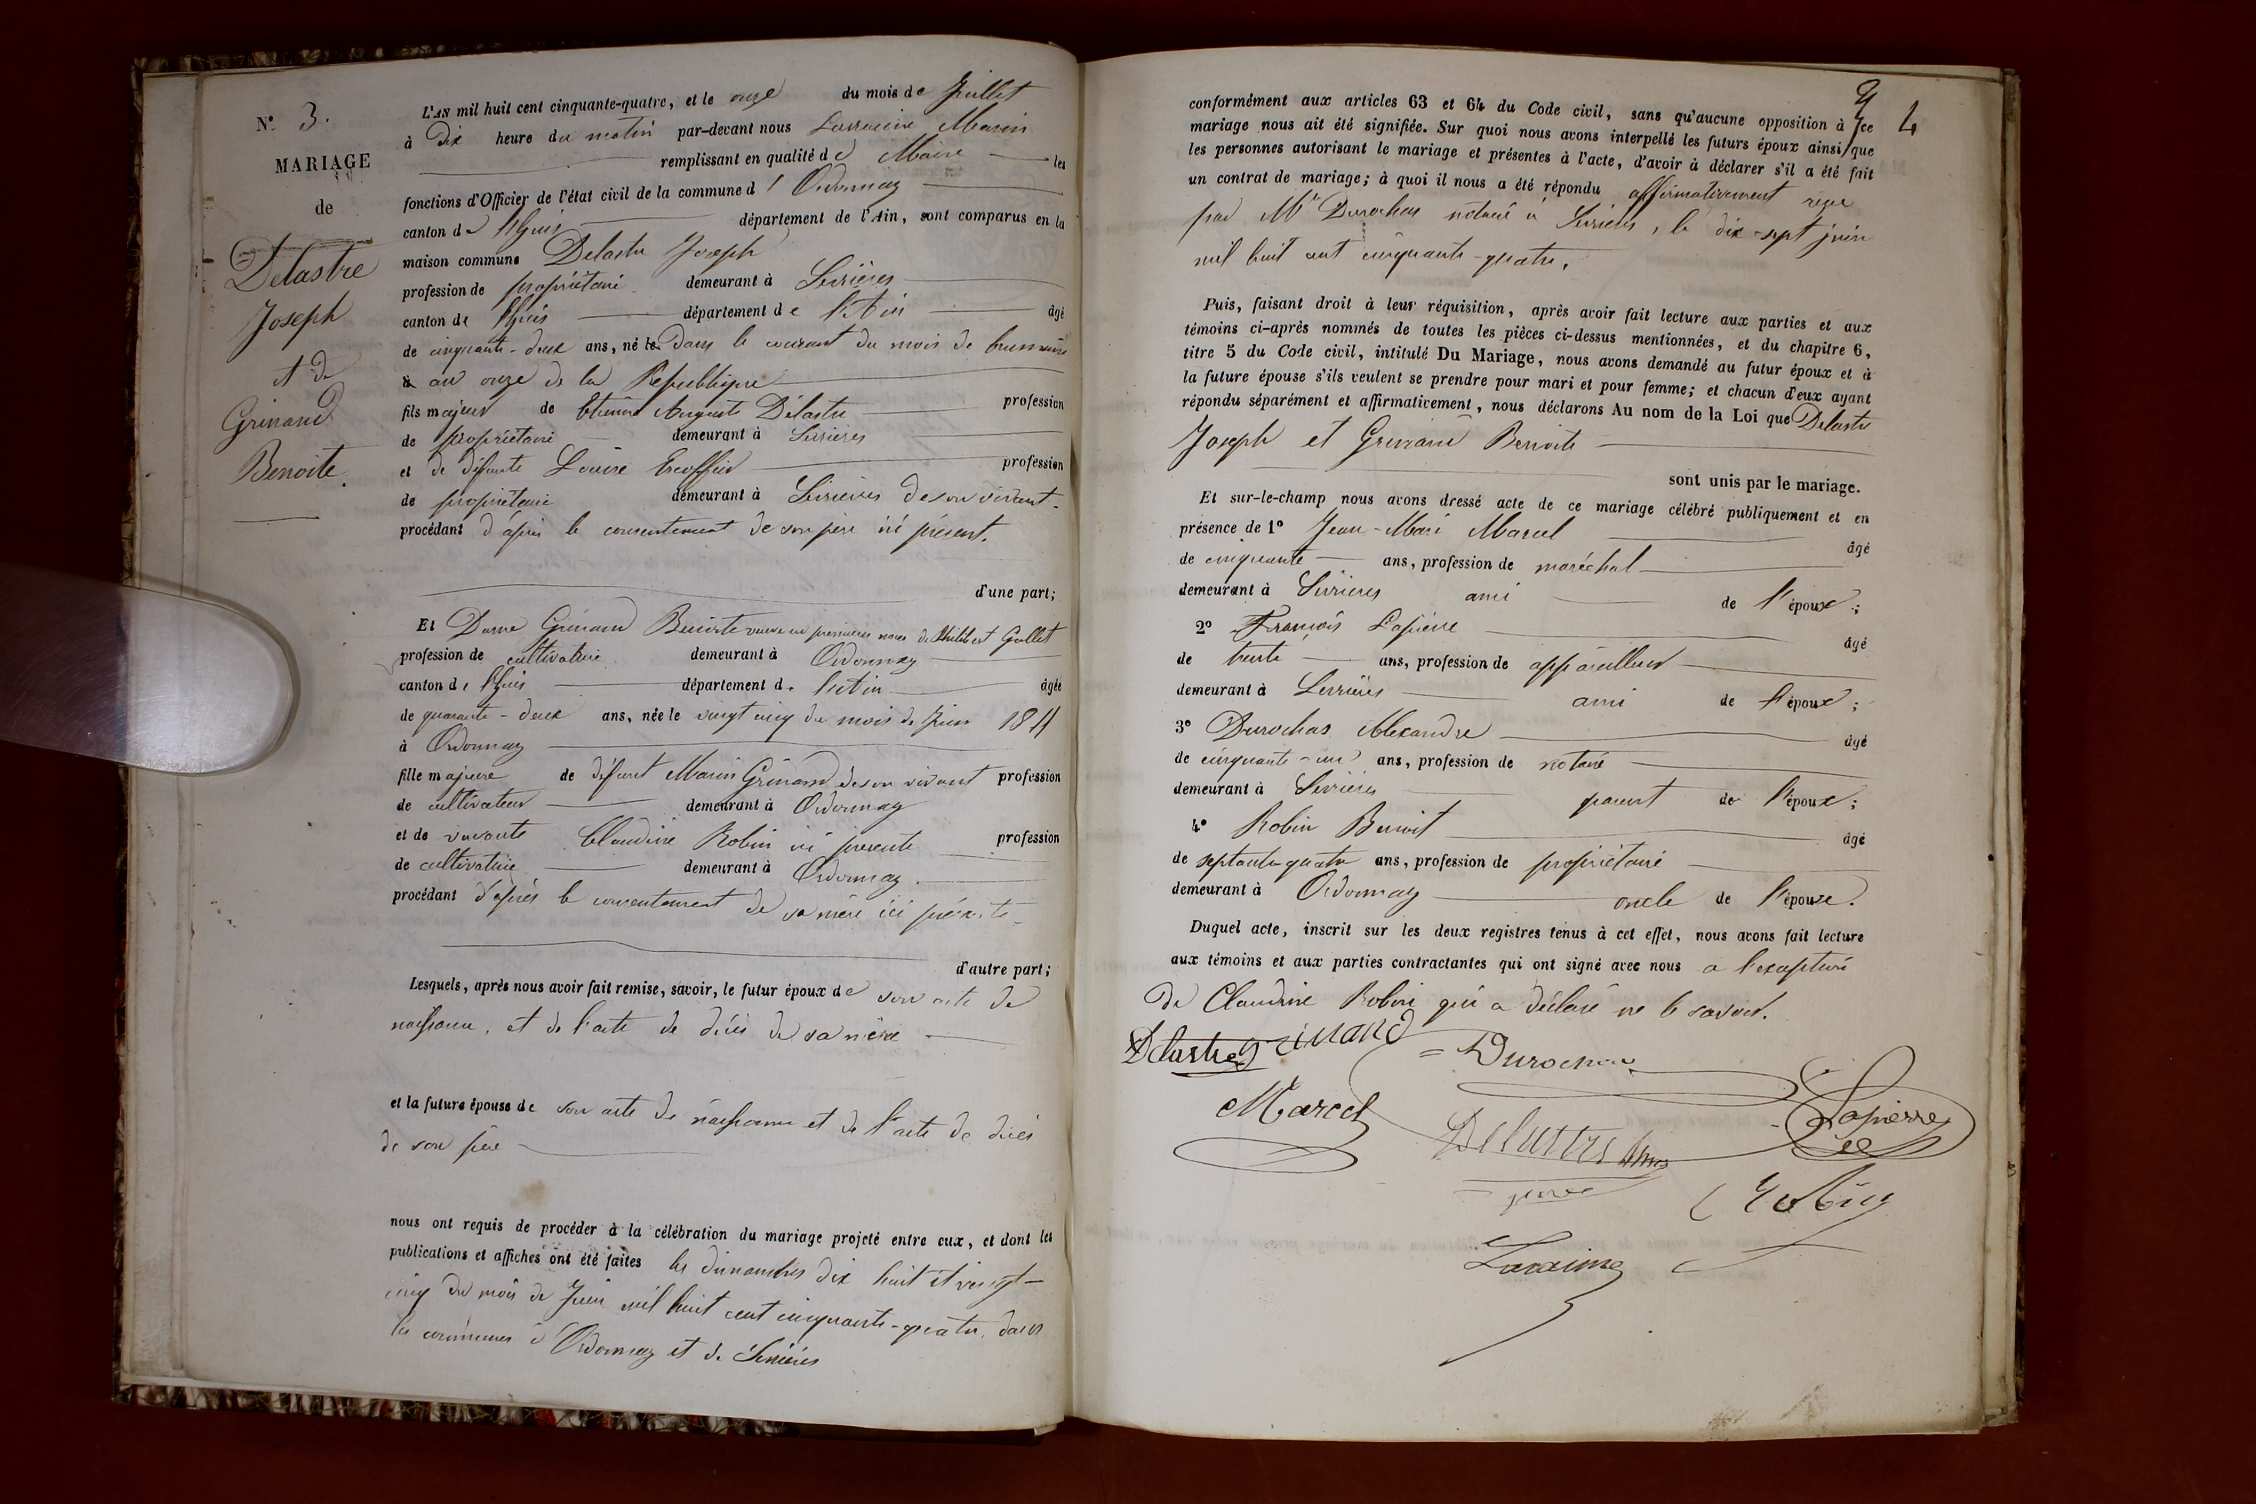 N° 3.
MARIAGE
de
Delastre
Joseph
et de
Grinand
Benoite.
L'AN mil huit cent cinquante-quatre, et le onze du mois de Juillet
à Dix heure du matin par-devant nous Marin
remplissant en qualité de Maire les
fonctions d'Officier de l'état civil de la commune d'Ordonnaz
canton de l'huis département de l'Ain, sont comparus en la
maison commune Delastre Joseph
profession de propriétaire demeurant à Serrières
canton de l'huis département de l'Ain âgé
de cinquante-deux ans, né le Dans le courant du mois de brumaire
à an onze de la République
fils majeur de Etienne Auguste Délastre profession
de propriétaire demeurant à Serrières
et de défunte Louise Escoffier profession
de propriétaire demeurant à Serrières de son vivant.
procédant d'après le consentement de son père ici présent.
d'une part;
Et Dame Grinand Benoite veuve en premières noces de Philibert Gallet
profession de cultivatrice demeurant à Ordonnaz
canton de l'huis département de l'Ain âgée
de quarante-deux ans, née le vingt cinq du mois de Juin 1811
à Ordonnaz
fille majeure de défunt Marin Grinand de son vivant profession
de cultivateur demeurant à Ordonnaz
et de vivante Claudine Robin ici presente profession
de cultivatrice demeurant à Ordonnaz.
procédant d'après le consentement de sa mère ici présente.
d'autre part;
Lesquels, après nous avoir fait remise, savoir, le futur époux de son acte de
naissance, et de l'acte de décès de sa mère
et la future épouse de son acte de naissance et de l'acte de décès
de son père
nous ont requis de procéder à la célébration du mariage projeté entre eux, et dont les
publications et affiches ont été faites les dimanches dix huit et vingt-
cinq du mois de Juin mil huit cent cinquante-quatre, dans
les communes d'Ordonnaz et de Serrières
4
conformément aux articles 63 et 64 du Code civil, sans qu'aucune opposition à ce
mariage nous ait été signifiée. Sur quoi nous avons interpellé les futurs époux ainsi que
les personnes autorisant le mariage et présentes à l'acte, d'avoir à déclarer s'il a été fait
un contrat de mariage; à quoi il nous a été répondu affirmativement reçu
par Me Durochas notaire à Serrières, le dix-sept juin
mil huit cent cinquante-quatre.
Puis, faisant droit à leur réquisition, après avoir fait lecture aux parties et aux
témoins ci-après nommés de toutes les pièces ci-dessus mentionnées, et du chapitre 6,
titre 5 du Code civil, intitulé Du Mariage, nous avons demandé au futur époux et à
la future épouse s'ils veulent se prendre pour mari et pour femme; et chacun d'eux ayant
répondu séparément et affirmativement, nous déclarons Au nom de la Loi que Delastre
Joseph et Grinand Benoite
sont unis par le mariage.
Et sur-le-champ nous avons dressé acte de ce mariage célébré publiquement et en
présence de 1° Jean-Marie Marcel âgé
de cinquante ans, profession de maréchal
demeurant à Serrières ami de l'époux;
2° François Lapierre âgé
de trente ans, profession de appareilleur
demeurant à Serrières ami de l'époux;
3° Durochas Alexandre âgé
de cinquante-un ans, profession de notaire
demeurant à Serrières parent de l'époux;
4° Robin Benoit âgé
de septante quatre ans, profession de propriétaire
demeurant à Ordonnaz oncle de l'épouse.
Duquel acte, inscrit sur les deux registres tenus à cet effet, nous avons fait lecture
aux témoins et aux parties contractantes qui ont signé avec nous a l'exception
de Claudine Robin qui a déclaré ne le savoir.
Delastre grinand Durochas
Marcel Lapierre
Delastre
père Robin